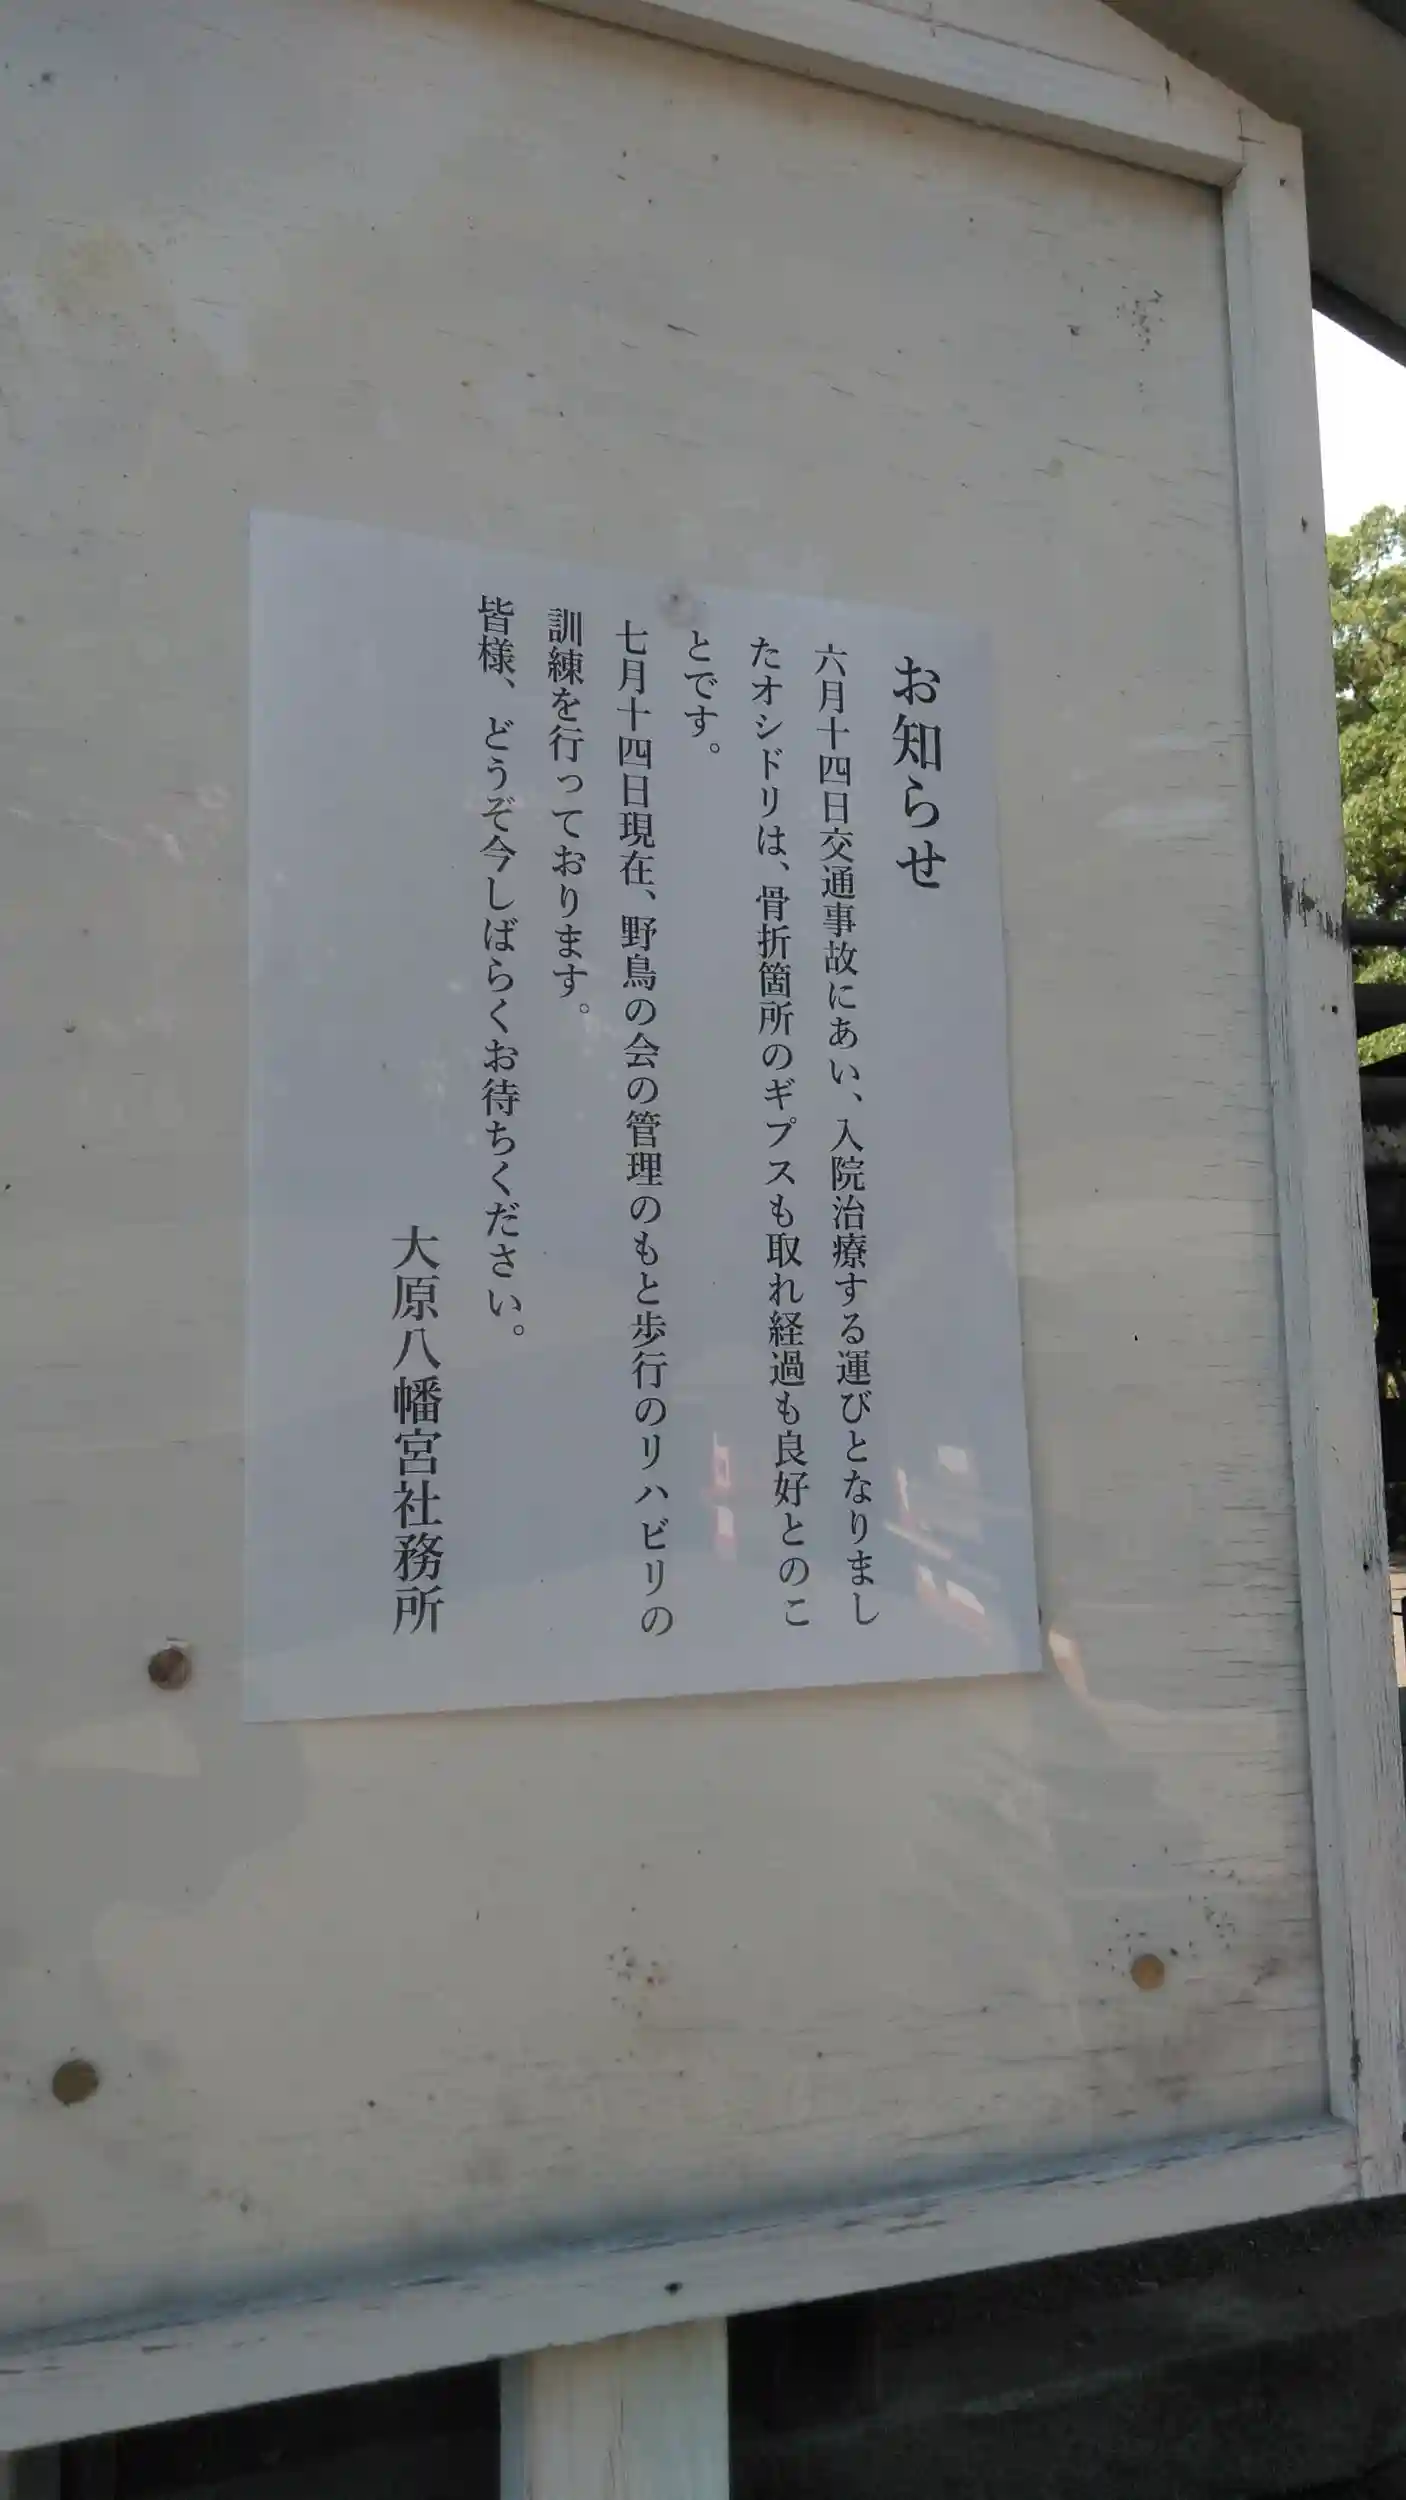 お知らせ
六月十四日交通事故にあい、入院治療する運びとなりまし
たオシドリは、骨折箇所のギプスも取れ経過も良好とのこ
とです。
七月十四日現在、野鳥の会の管理のもと歩行のリハビリの
訓練を行っております。
皆様、どうぞ今しばらくお待ちください。
大原八幡宮社務所